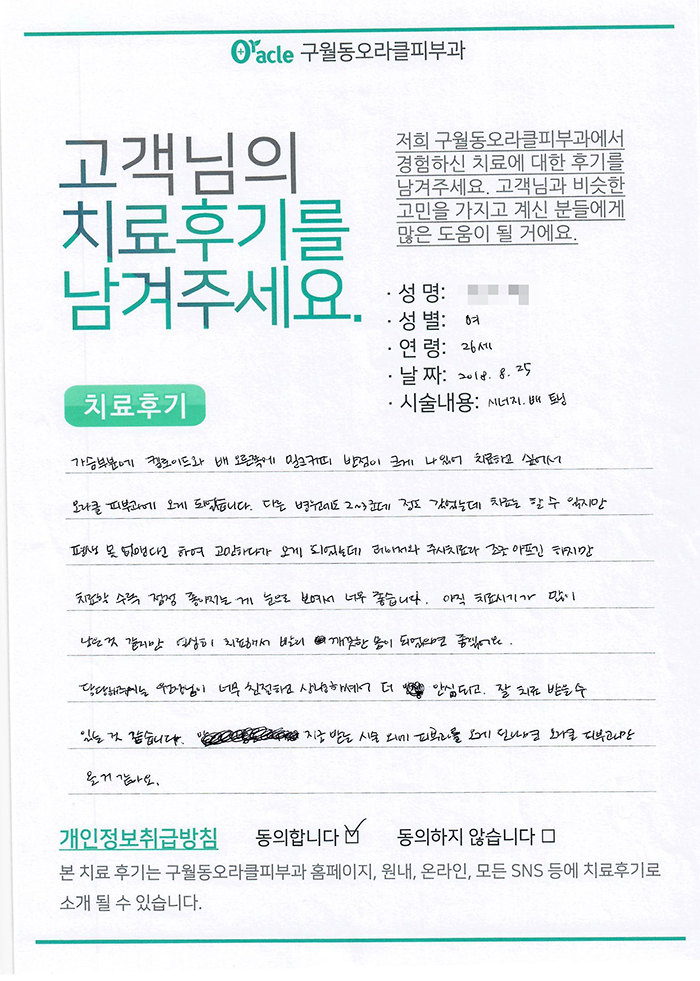 Oracle 구월동오라클피부과
고객님의
치료후기를
남겨주세요.
저희 구월동오라클피부과에서
경험하신 치료에 대한 후기를
남겨주세요. 고객님과 비슷한
고민을 가지고 계신 분들에게
많은 도움이 될 거에요.
· 성 명:
· 성 별: 여
· 연 령: 26세
· 날 짜: 2018. 8. 25
· 시술내용: 시너지. 배 토닝
치료후기
가슴부분에 켈로이드와 배 오른쪽에 밀크커피 반점이 크게 나있어 치료하고 싶어서
오라클 피부과에 오게 되었습니다. 다른 병원에도 2~3군데 정도 갔었는데 치료는 할 수 있지만
평생 못 없앤다고 하여 고민하다가 오게 되었는데 레이저와 주사치료라 조금 아프긴 하지만
치료할 수록 점점 좋아지는 게 눈으로 보여서 너무 좋습니다. 아직 치료시기가 많이
남은것 같지만 열심히 치료해서 빨리 깨끗한 몸이 되었으면 좋겠어요.
담당해주시는 원장님이 너무 친절하고 상냥하셔서 더 안심되고. 잘 치료 받을수
있는 것 같습니다. 지금 받는 시술 외에 피부과를 오게 된다면 오라클 피부과만
올거 같아요.
개인정보취급방침 동의합니다 ☑ 동의하지 않습니다 □
본 치료 후기는 구월동오라클피부과 홈페이지, 원내, 온라인, 모든 SNS 등에 치료후기로
소개 될 수 있습니다.